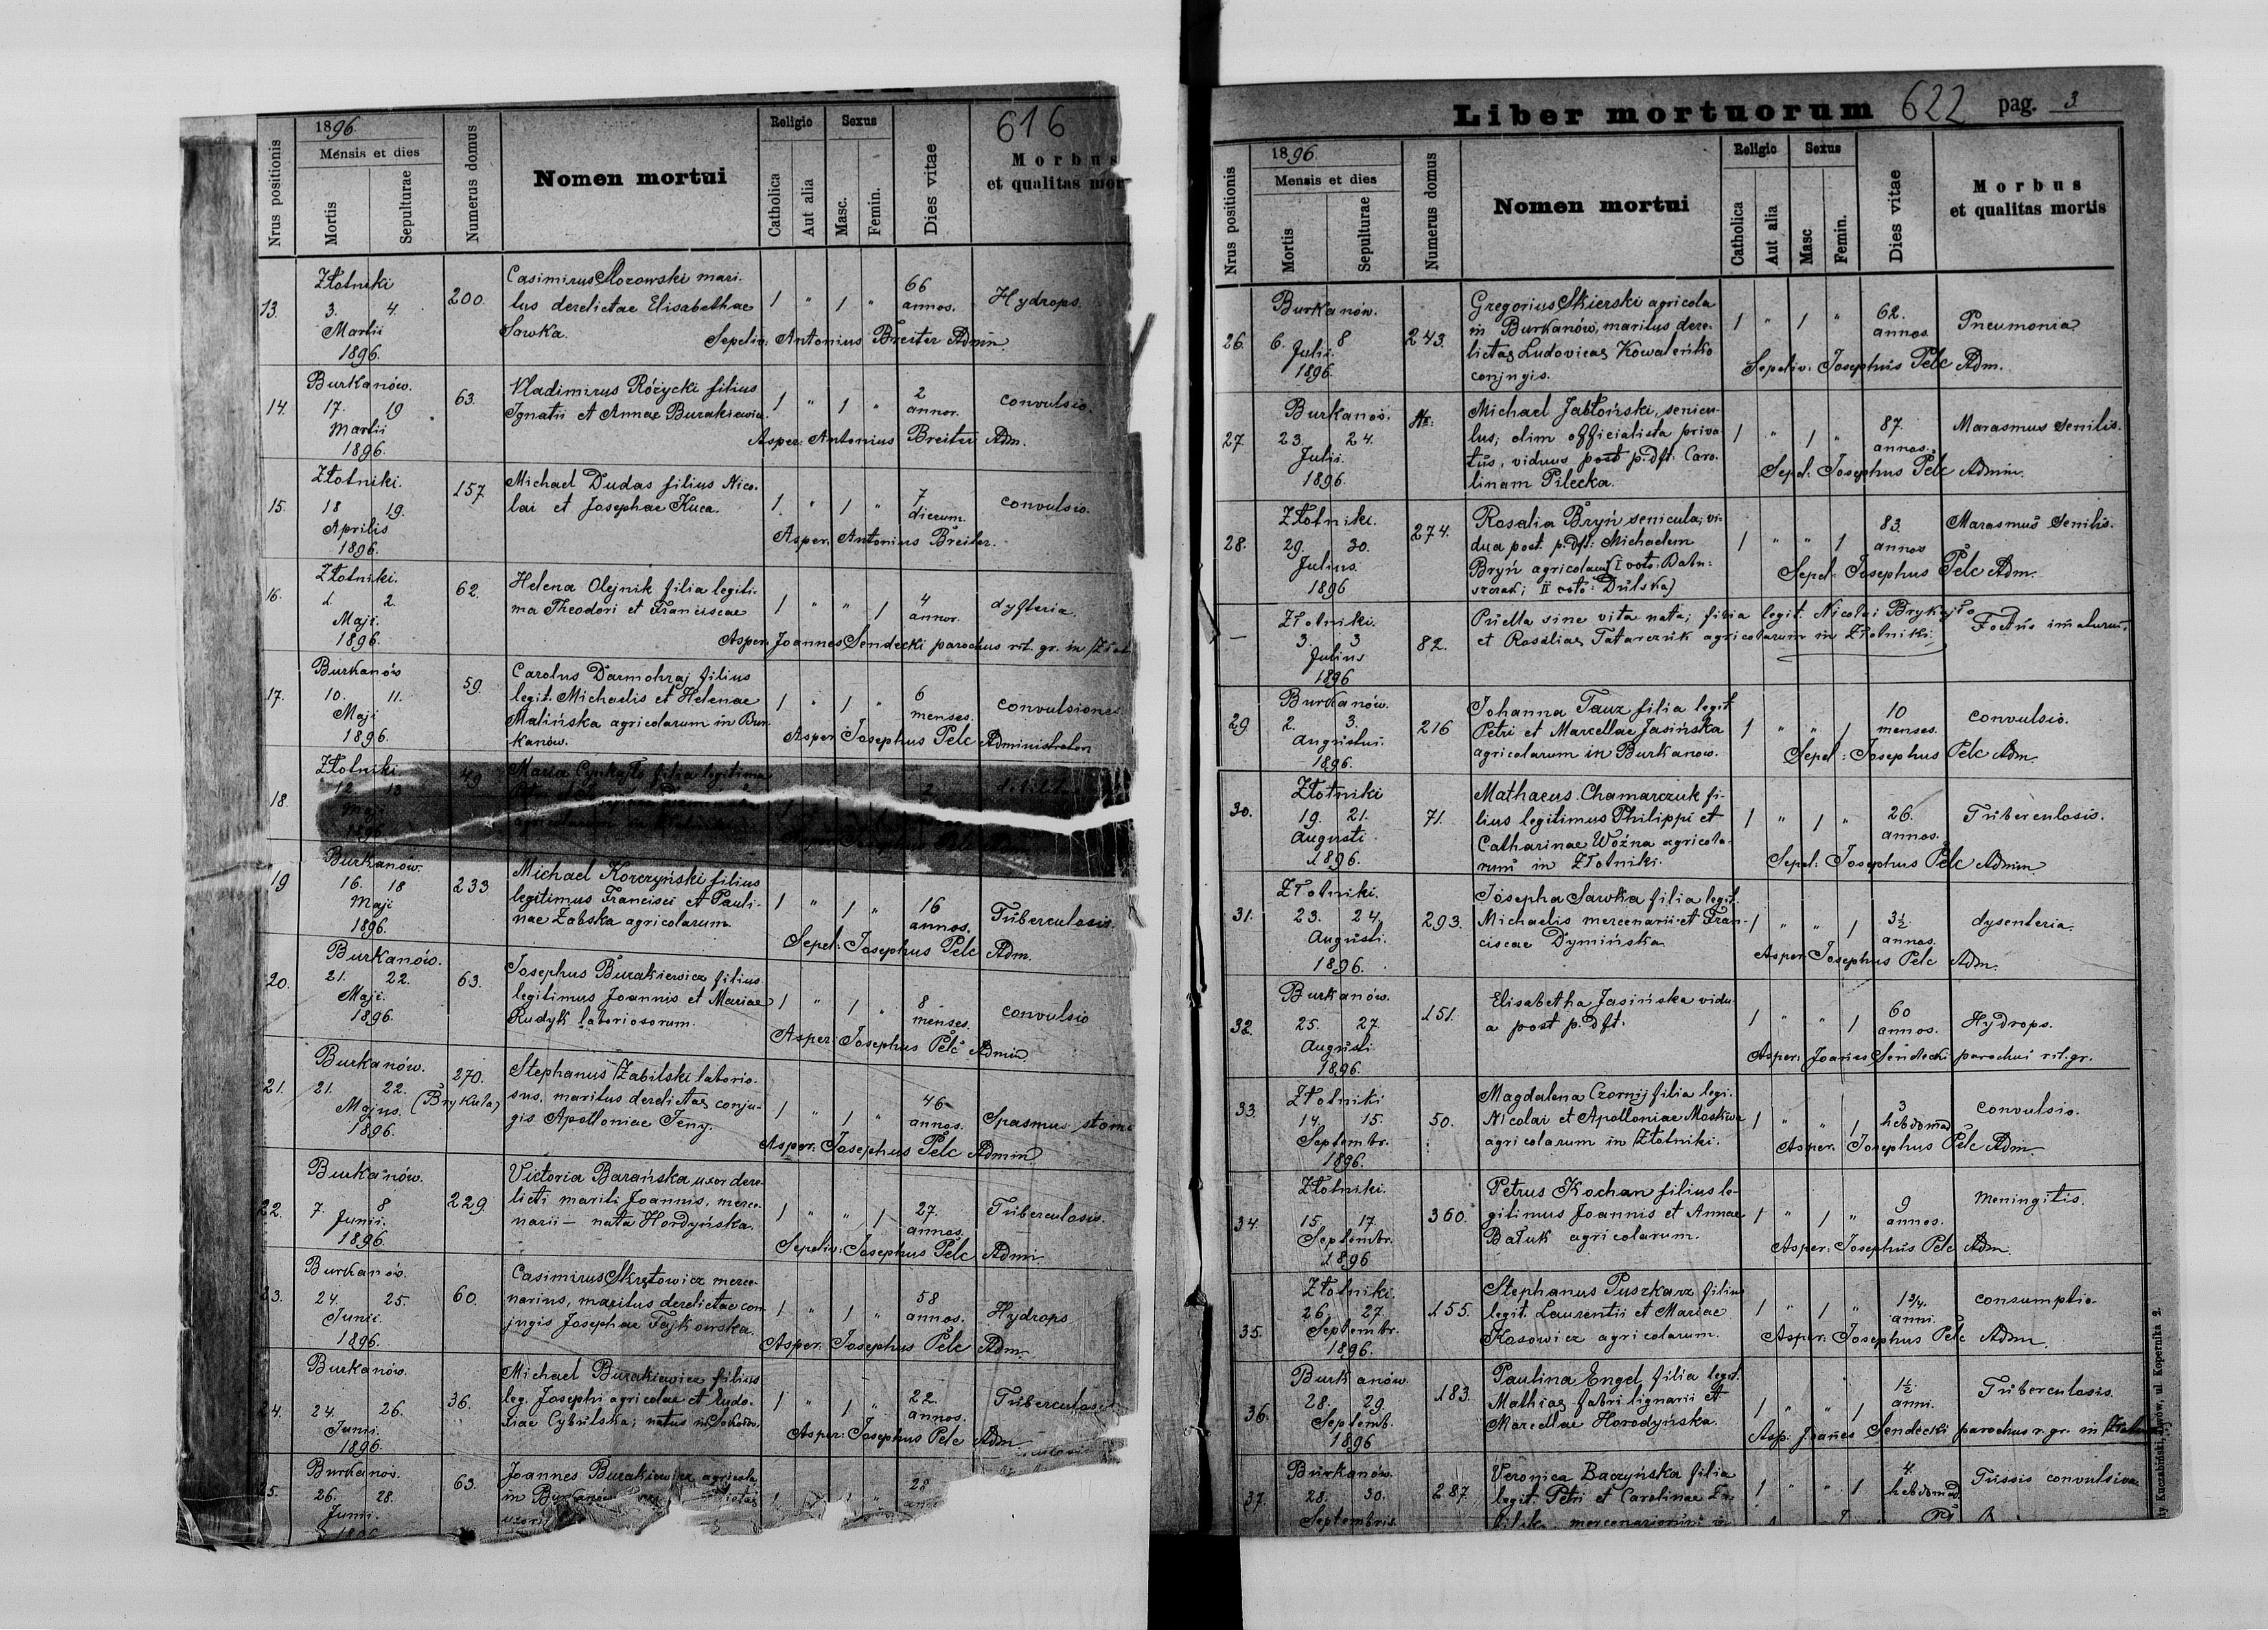 616
1896
Religio
Sexus
Nrus positionis
Mensis et dies
Mortis
Sepulturae
Numerus domus
Nomen mortui
Catholica
Aut alia
Masc.
Femin.
Dies vitae
Morbus
et qualitas mor
13.
Złotniki
3. 4.
Martii
1896.
200.
Casimirus mari-
tus derelictae Elisabethae
Sawka.
1 " 1 "
66
annos.
Hydrops.
Sepeliv: Antonius Breiter Admin.
14.
Burkanów.
17. 19
Martii
1896.
63.
Vladimirus Różycki filius
Ignatii et Annae Burakiewicz.
1 " 1 "
2
annor.
convulsio.
Asper: Antonius Breiter Adm.
15.
Złotniki.
18 19.
Aprilis
1896.
157
Michael Dudas filius Nico-
lai et Josephae Kuca.
1 " 1 "
7
dierum.
convulsio.
Asper. Antonius Breiter.
16.
Złotniki.
1. 2.
Maji.
1896.
62.
Helena Olejnik filia legiti-
ma Theodori et Franciscae
1 " " 1
4
annor.
dyfteria.
Asper. Joannes Sendecki parochus rit. gr. in Złot
17.
Burkanów
10. 11.
Maji
1896.
59.
Carolus Darmohraj filius
legit. Michaelis et Helenae
Malińska agricolarum in Bur-
kanów.
1 " 1 "
6
menses.
convulsiones
Asper Josephus Pelc Administrator
18.
Złotniki
12. 13
Maji
1896
49
Maria filia legitima
2
19
Burkanów.
16. 18
Maji
1896.
233
Michael Korczyński filius
legitimus Francisci et Pauli-
nae Zabska agricolarum.
1 " 1 "
16
annos.
Tuberculosis.
Sepel: Josephus Pelc Adm.
20.
Burkanów.
21. 22.
Maji.
1896.
63.
Josephus Burakiewicz filius
legitimus Joannis et Mariae
Rudyk laboriosorum.
1 " 1 "
8
menses.
convulsio
Asper: Josephus Pelc Admin.
21.
Burkanów.
21. 22.
Majus.
1896.
270.
(Brykula)
Stephanus Zabilski laborio-
sus, maritus derelictae conju-
gis Apolloniae Teny.
1 " 1 "
46
annos.
Spasmus stoma
Asper: Josephus Pelc Admin.
22.
Burkanów.
7. 8
Junii.
1896.
229
Victoria Barańska uxor dere-
licti mariti Joannis, merce-
narii – nata Hordyńska.
1 " " 1
27.
annos.
Tuberculosis.
Sepeliv: Josephus Pelc Adm.
23.
Burkanów.
24. 25.
Junii.
1896.
60.
Casimirus Skrętowicz merce-
narius, maritus derelictae con-
jugis Josephae Fajkowska.
1 " 1 "
58
annos.
Hydrops
Asper. Josephus Pelc Adm.
24.
Burkanów.
24. 26.
Junii.
1896.
36.
Michael Burakiewicz filius
leg. Josephi agricolae et Eudo-
xiae Cybulska; natus in
1 " 1 "
22.
annos.
Tuberculosis
Asper: Josephus Pelc Adm.
25.
Burkanów.
26. 28.
Junii.
1896
63.
Joannes Burakiewicz agricola
in Burkanów
uxoris
28
Liber mortuorum 622 pag. 3
1896.
Religio
Sexus
Nrus positionis
Mensis et dies
Mortis
Sepulturae
Numerus domus
Nomen mortui
Catholica
Aut alia
Masc
Femin.
Dies vitae
Morbus
et qualitas mortis
26.
Burkanów.
6. 8
Julii.
1896.
243.
Gregorius Skierski agricola
in Burkanów, maritus dere-
lictae Ludovicae Kowaleńko
conjugis.
1 " 1 "
62.
annos
Pneumonia
Sepeliv: Josephus Pelc Adm.
27.
Burkanów.
23. 24.
Julii.
1896.
Michael Jabłoński, senicu-
lus; olim officialista priva-
tus, viduus post p. dft. Caro-
linam Pilecka.
1 " 1 "
87.
annos.
Marasmus senilis.
Sepel: Josephus Pelc Admin.
28.
Złotniki.
29. 30.
Julius.
1896
274.
Rosalia Bryń senicula; vi-
dua post. p. dft: Michaelem
Bryń agricolam (I voto: Batu-
szczak; II voto: Dulska)
1 " " 1
83.
annos
Marasmus senilis.
Sepel: Josephus Pelc Adm.
—
Złotniki.
3. 3
Julius
1896
82.
Puella sine vita nata; filia legit. Nicolai Brykajło
et Rosaliae Tatarczuk agricolarum in Złotniki.
Foetus imaturus.
29
Burkanów.
2. 3.
Augustus.
1896.
216
Johanna Tauz filia legit
Petri et Marcellae Jasińska
agricolarum in Burkanow.
1 " " 1
10
menses.
convulsio.
Sepel: Josephus Pelc Adm.
30.
Złotniki
19. 21.
Augusti
1896.
71.
Mathaeus Chamarczuk fi-
lius legitimus Philippi et
Catharinae Woźna agricola-
rum in Złotniki.
1 " 1 "
26.
annos.
Tuberculosis.
Sepel: Josephus Pelc Admin
31.
Złotniki.
23. 24.
Augusti.
1896.
293.
Josepha Sawka filia legit.
Michaelis mercenarii et Fran-
ciscae Dymińska
1 " " 1
3½
annos.
dysenteria.
Asper Josephus Pelc Adm.
32.
Burkanów.
25. 27.
Augusti
1896.
151.
Elisabetha Jasińska vidu-
a post p. dft.
1 " " 1
60
annos.
Hydrops.
Asper: Joannes Sendecki parochus rit. gr.
33.
Złotniki
14. 15.
Septembr.
1896.
50.
Magdalena Czornij filia legi.
Nicolai et Apolloniae Moskwa
agricolarum in Złotniki.
1 " " 1
3
hebdomad
convulsio.
Asper. Josephus Pelc Adm.
34.
Złotniki.
15. 17.
Septembr.
1896
360.
Petrus Kochan filius le-
gitimus Joannis et Annae
Batuk agricolarum.
1 " 1 "
9
annos.
Meningitis.
Asper: Josephus Pelc Adm.
35.
Złotniki.
26. 27.
Septembr.
1896.
155.
Stephanus Puszkarz filius
legit. Laurentii et Mariae
Kosowicz agricolarum.
1 " 1 "
1¾.
anni.
consumptio.
Asper: Josephus Pelc Adm.
36.
Burkanów.
28. 29.
Septemb.
1896
183.
Paulina Engel, filia legit.
Mathiae fabri lignarii et
Marcellae Horodyńska.
1 " " 1
1½
anni.
Tuberculosis.
Asp: Joanes Sendecki parochus r. gr. in
37.
Burkanów.
28. 30.
Septembris
287.
Veronica Baczyńska filia
legit. Petri et Carolinae
mercenariorum in
1 " " 1
4.
hebdomad.
Tussis convulsiva
ty Kuczabiński, Lwów, ul. Kopernika 2.